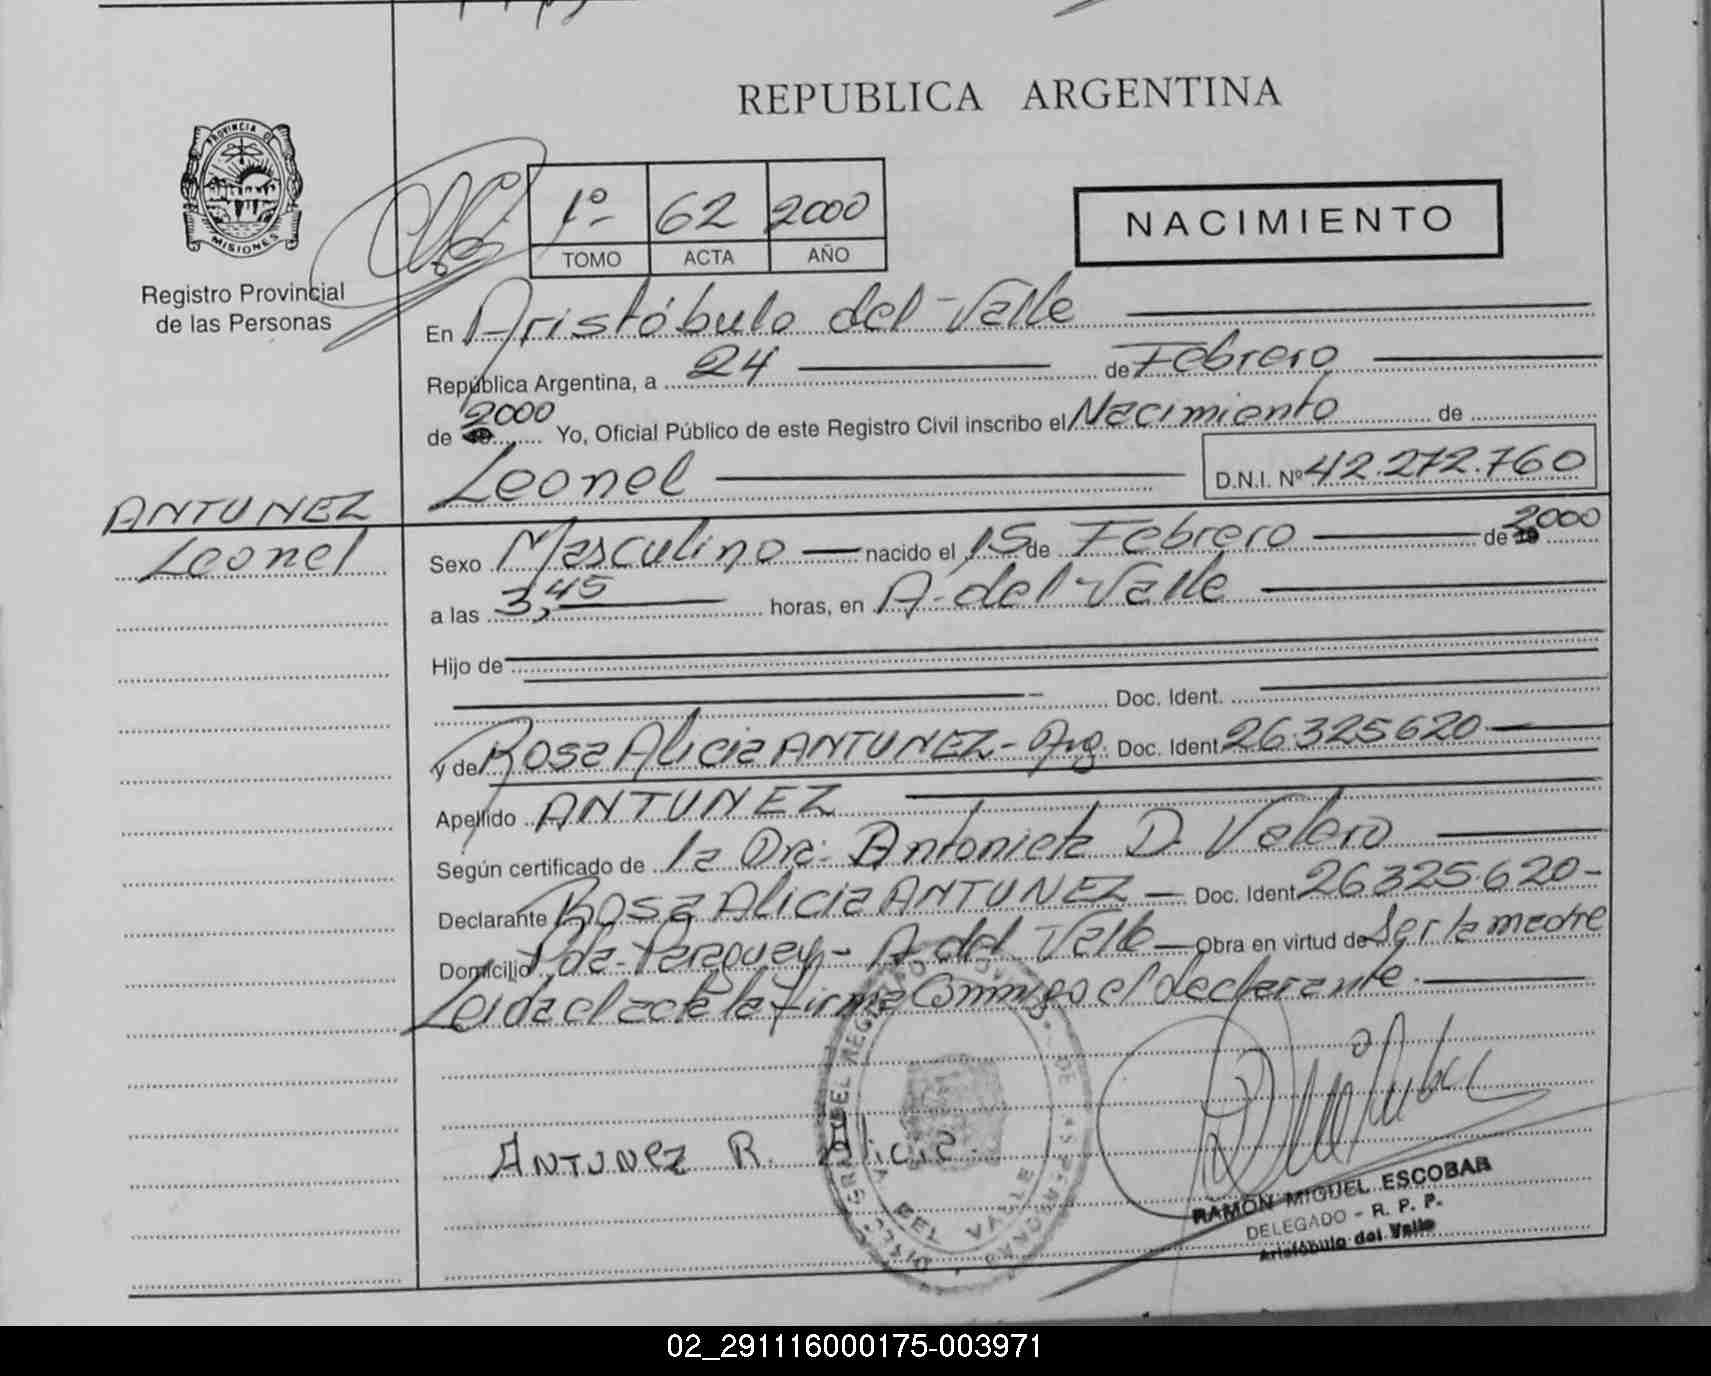 REPUBLICA ARGENTINA
PROVINCIA DE
MISIONES
Registro Provincial
de las Personas
1º 62 2000
TOMO ACTA AÑO
NACIMIENTO
En Aristóbulo del Valle
República Argentina, a 24 de Febrero
de 2000 Yo, Oficial Público de este Registro Civil inscribo el Nacimiento de
Leonel D.N.I. Nº 42.272.760
ANTUNEZ
Leonel
Sexo Masculino nacido el 15 de Febrero de 2000
a las 3,45 horas, en A. del Valle
Hijo de
Doc. Ident.
y de Rosa Alicia ANTUNEZ - Arg. Doc. Ident. 26.325620
Apellido ANTUNEZ
Según certificado de la Dra. Antonieta D. Valero
Declarante Rosa Alicia ANTUNEZ - Doc. Ident. 26325.620-
Domicilio Pda. Paraguay - A. del Valle - Obra en virtud de Ser la madre
Leida el acta la firma Conmigo el declarante.
ANTUNEZ R. Alicia
RAMON MIGUEL ESCOBAR
DELEGADO - R. P. P.
Aristóbulo del Valle
02_291116000175-003971